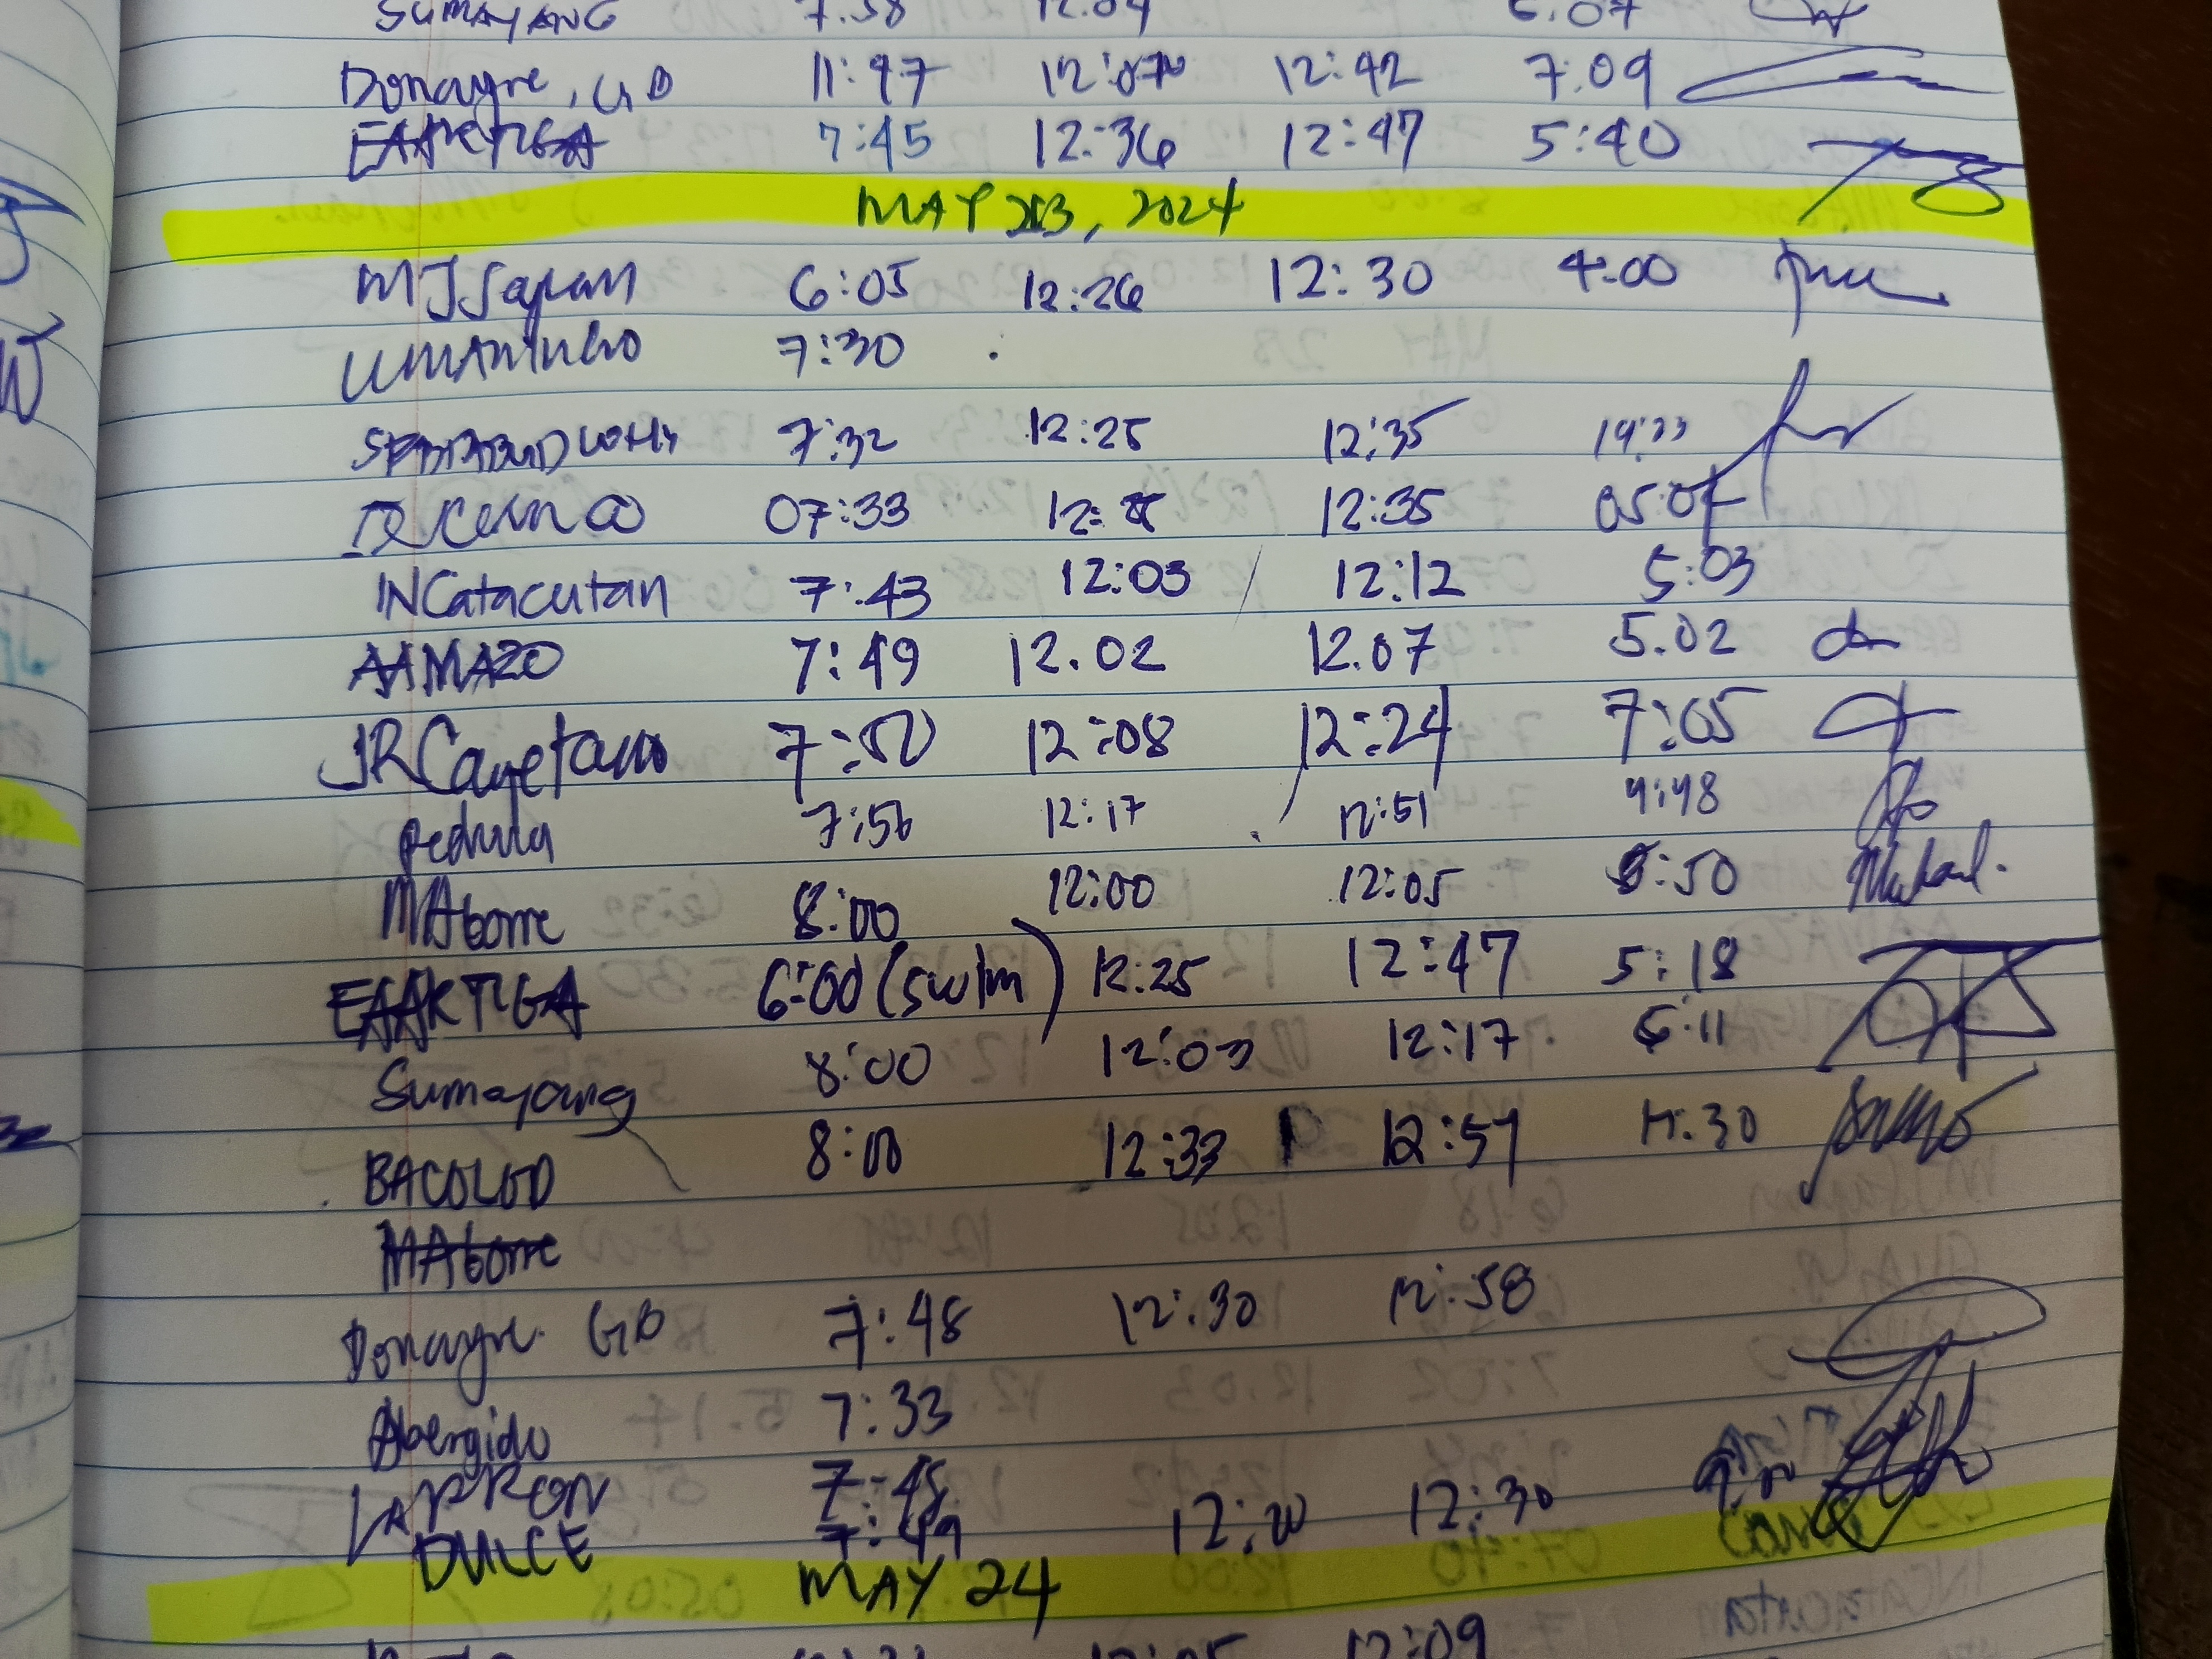 SUMAYANG 7.58 12.04 6.07
Donayre, GD 11:47 12:07 12:42 7:09
EAARTIGA 7:45 12:36 12:47 5:40
MAY 23, 2024
MJSapan 6:05 12:26 12:30 4:00
UMANINGO 7:30
7:32 12:25 12:35
07:33 12: 12:35 05:07
INCatacutan 7:43 12:03 12:12 5:03
AAMAZO 7:49 12.02 12.07 5.02
JRCayetano 7:50 12:08 12:24 7:05
Pedrula 7:56 12:17 12:51 4:48
MAborre 8:00 12:00 12:05 5:50
EAARTIGA 6:00 (swim) 12:25 12:47 5:18
Sumayang 8:00 12:03 12:17 6:11
BACOLOD 8:00 12:33 12:57 17:30
MAborre
Donayre GD 7:48 12:30 12:58
Abengido 7:33
LAPRON 7:48
DULCE 7:49 12:20 12:30
MAY 24
12:05 12:09